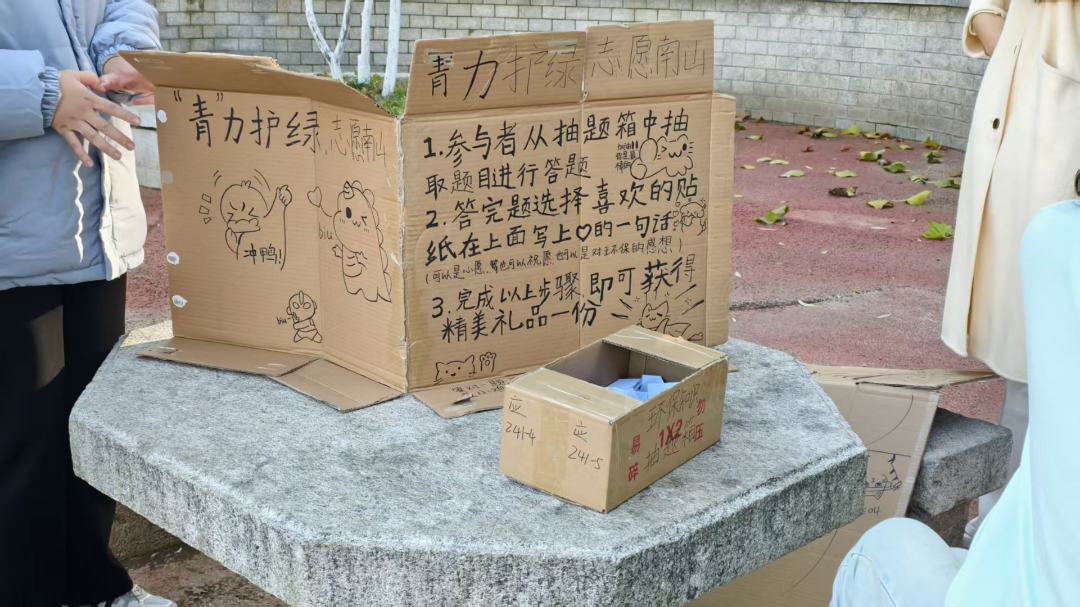 “青”力护绿,志愿南山
冲鸭!
biu
biu
青力护绿 志愿南山
1.参与者从抽题箱中抽
取题目进行答题
2.答完题选择喜欢的贴
纸在上面写上♡的一句话
3.完成以上步骤即可获得
精美礼品一份
应
241-4
应
241-5
环保知识
抽题箱
易碎
1X2
勿压